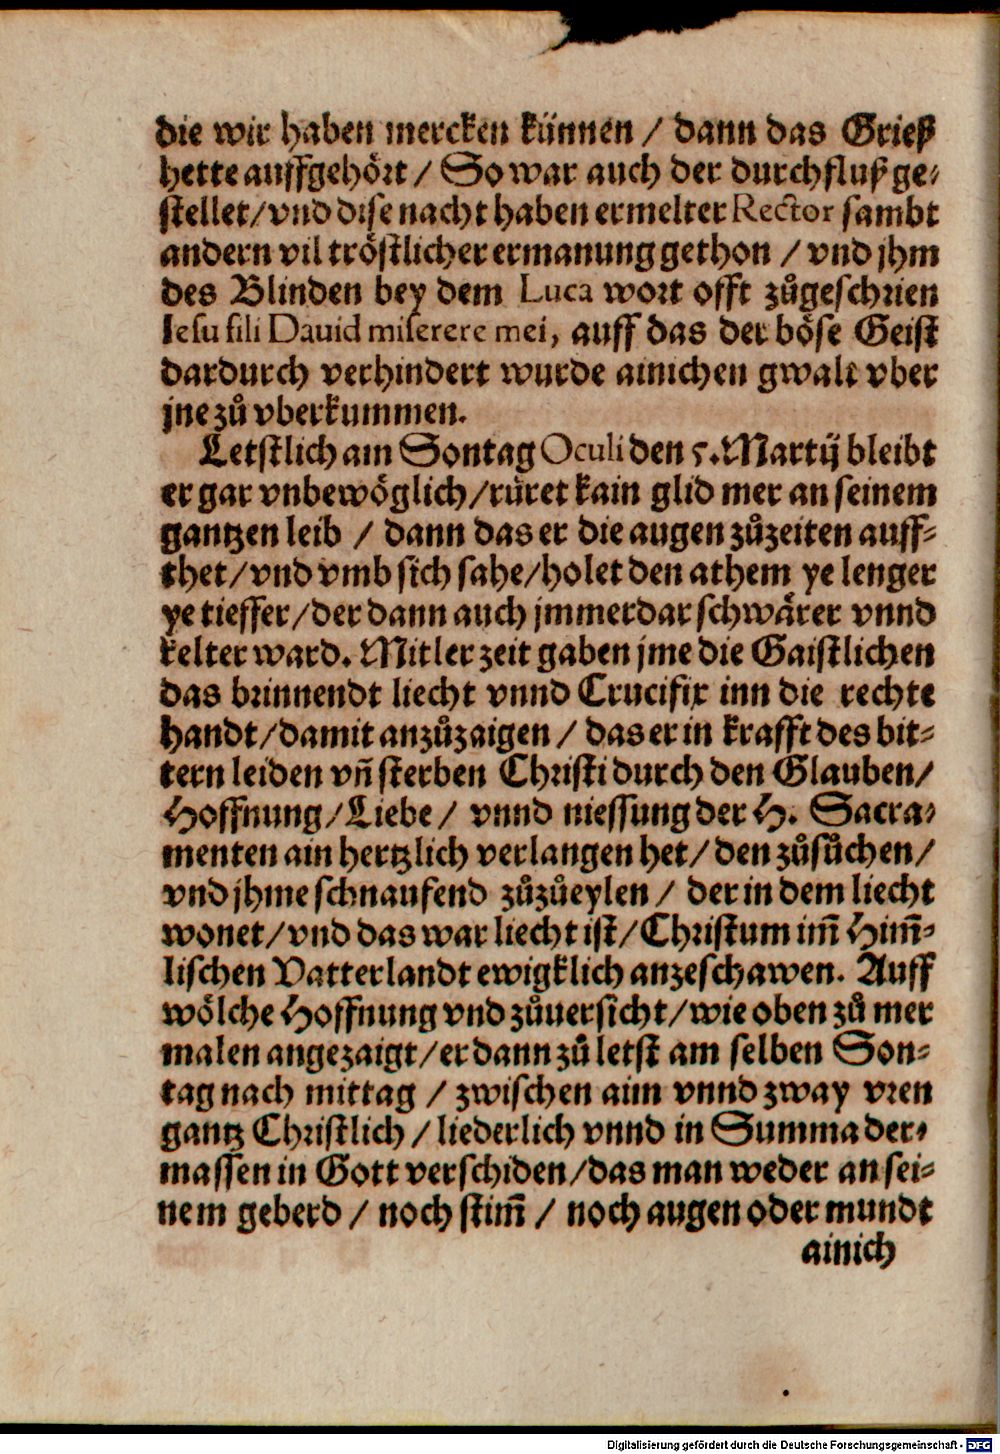 die wir haben mercken künnen / dann das Grieß
hette auffgehört / So war auch der durchfluß ge-
stellet / vnd dise nacht haben ermelter Rector sambt
andern vil tröstlicher ermanung gethon / vnd jhm
des Blinden bey dem Luca wort offt zůgeschrien
Iesu fili Dauid miserere mei, auff das der böse Geist
dardurch verhindert wurde ainichen gwalt vber
jne zů vberkummen.
Letstlich am Sontag Oculi den 5. Martij bleibt
er gar vnbewöglich / růret kain glid mer an seinem
gantzen leib / dann das er die augen zůzeiten auff-
thet / vnd vmb sich sahe / holet den athem ye lenger
ye tieffer / der dann auch jmmerdar schwärer vnnd
kelter ward. Mitler zeit gaben jme die Gaistlichen
das brinnendt liecht vnnd Crucifix inn die rechte
handt / damit anzůzaigen / das er in krafft des bit-
tern leiden vñ sterben Christi durch den Glauben /
Hoffnung / Liebe / vnnd niessung der H. Sacra-
menten ain hertzlich verlangen het / den zůsůchen /
vnd jhme schnaufend zůzůeylen / der in dem liecht
wonet / vnd das war liecht ist / Christum im̃ Him̃-
lischen Vatterlandt ewigklich anzeschawen. Auff
wölche Hoffnung vnd zůuersicht / wie oben zů mer
malen angezaigt / er dann zů letst am selben Son-
tag nach mittag / zwischen aim vnnd zway vren
gantz Christlich / liederlich vnnd in Summa der-
massen in Gott verschiden / das man weder an sei-
nem geberd / noch stim̃ / noch augen oder mundt
ainich
Digitalisierung gefördert durch die Deutsche Forschungsgemeinschaft - DFG